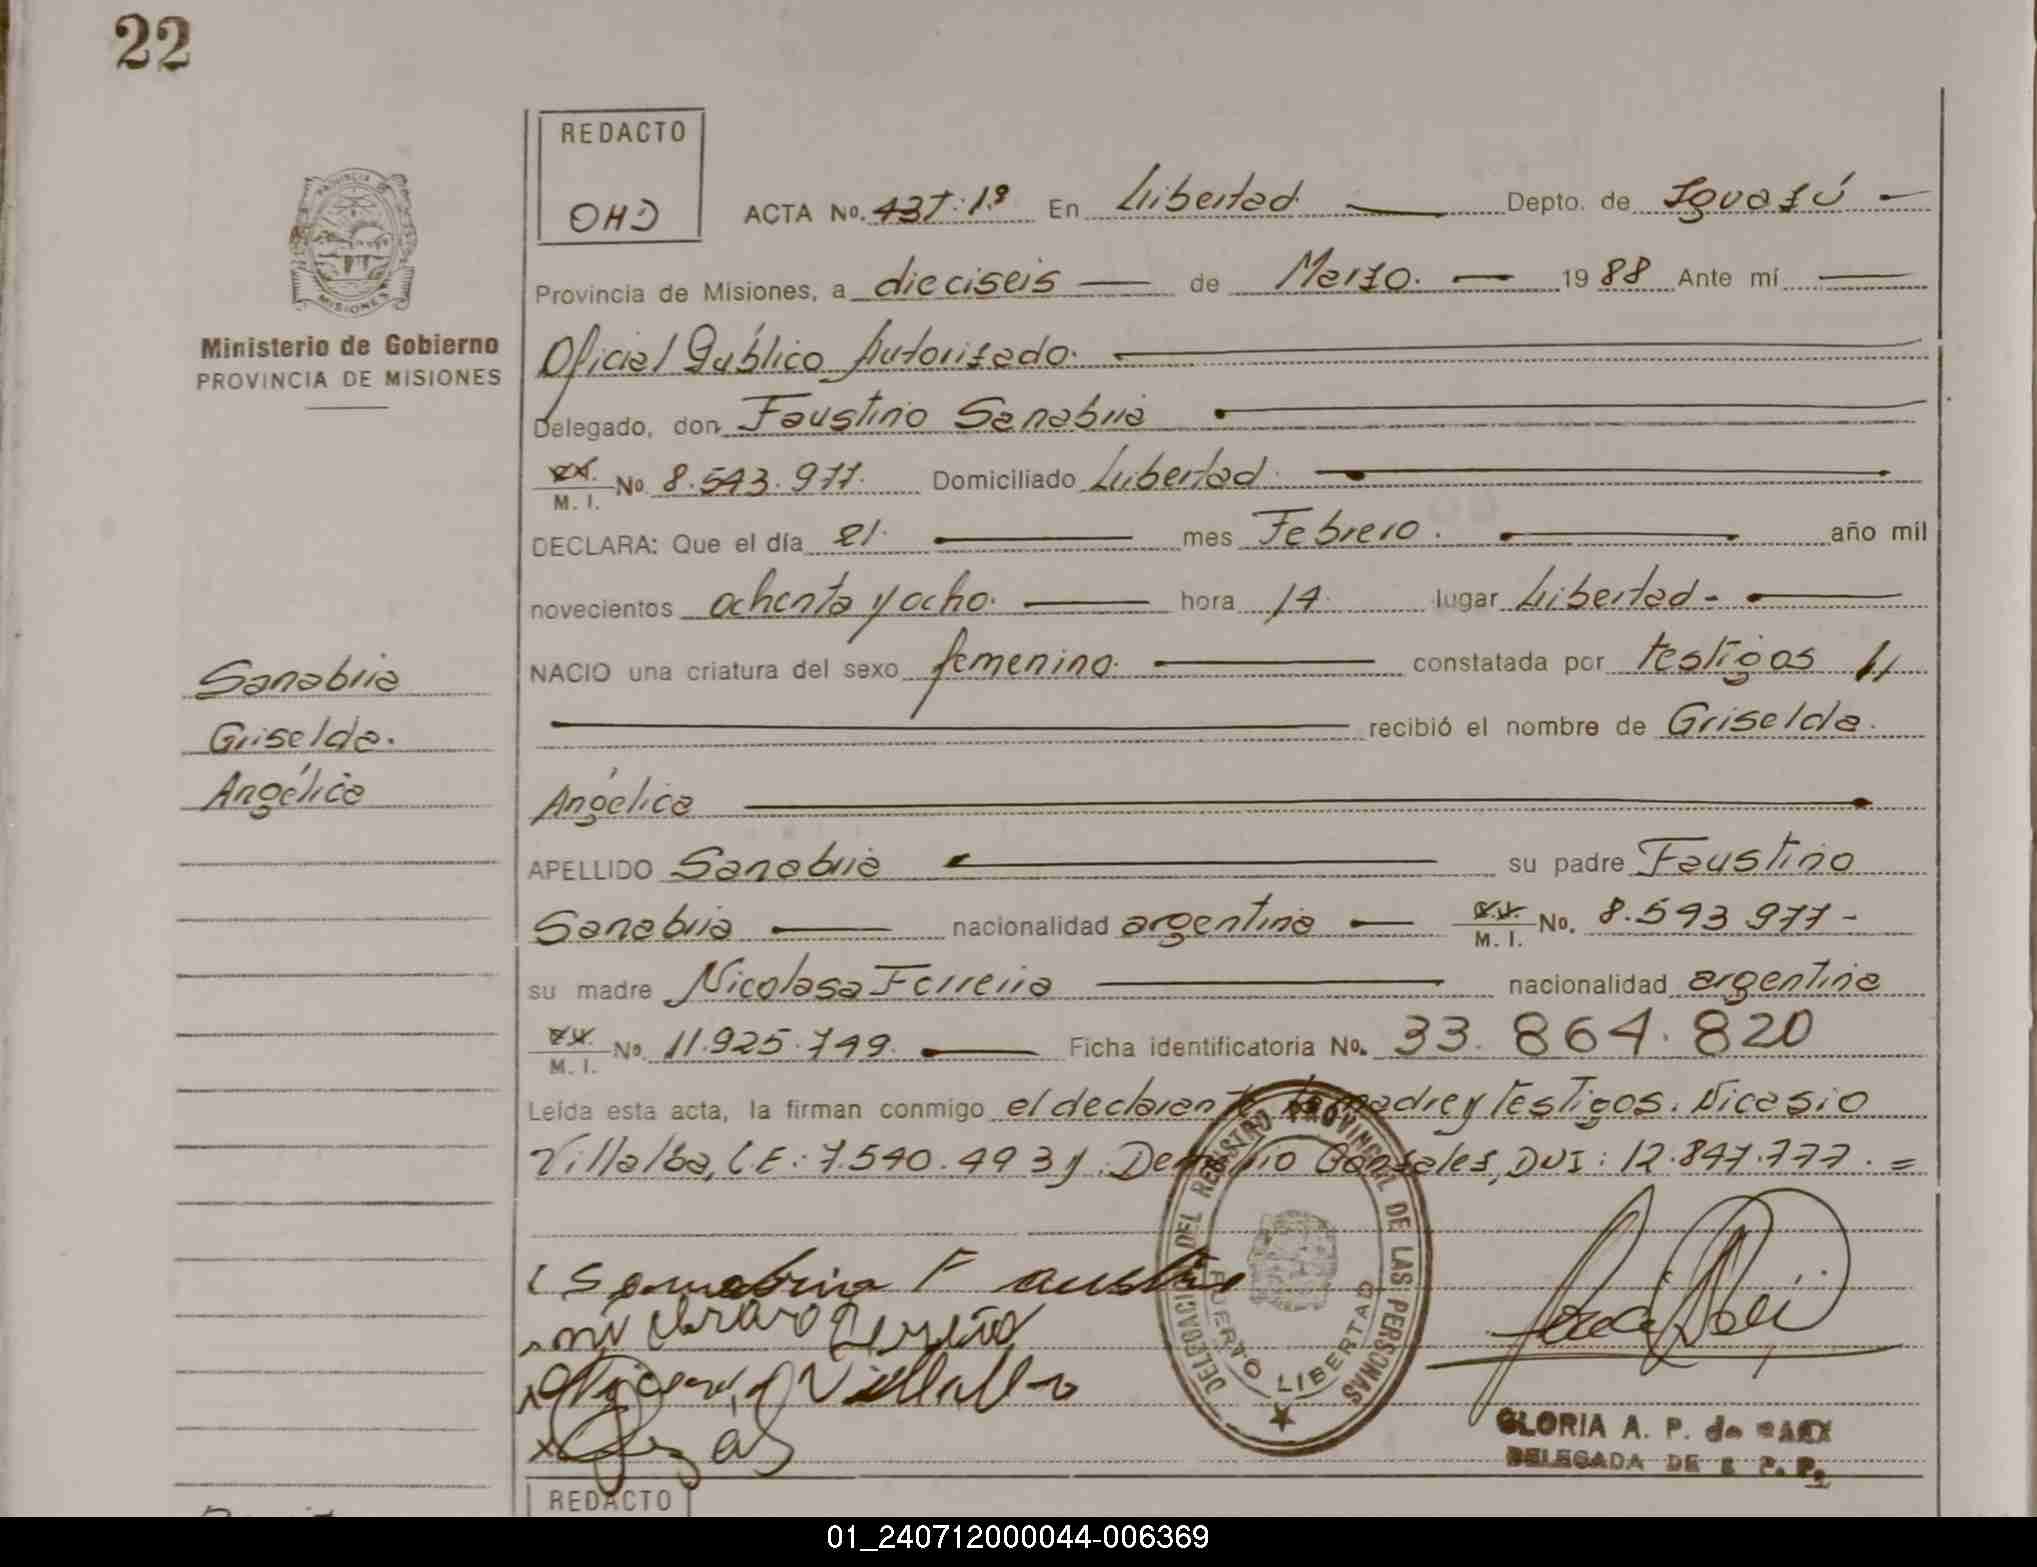 22
REDACTO
OHD
ACTA No. 437:1º En Libertad Depto. de Iguazú
Provincia de Misiones, a dieciseis de Marzo. 1988 Ante mí
Ministerio de Gobierno
PROVINCIA DE MISIONES
Oficial Público Autorizado.
Delegado, don Faustino Sanabria
M. I. No. 8.593.977. Domiciliado Libertad.
DECLARA: Que el día 21. mes Febrero. año mil
novecientos ochenta y ocho. hora 14. lugar Libertad.-
NACIO una criatura del sexo femenino. constatada por testigos
recibió el nombre de Griselda.
Angélica
Sanabria
Griselda.
Angélica
APELLIDO Sanabria su padre Faustino
Sanabria nacionalidad argentina M. I. No. 8.593.977-
su madre Nicolasa Ferreira nacionalidad argentina
M. I. No. 11.925.749. Ficha identificatoria No. 33.864.820
Leída esta acta, la firman conmigo el declarante la madre y testigos. Nicasio
Villalba, C.E: 7.540.493 y Demetrio Gonzales, DUI: 12.847.777.=
DELEGACION DEL REGISTRO PROVINCIAL DE LAS PERSONAS
PUERTO LIBERTAD
Sanabria Faustino
Villalba
GLORIA A. P. de
DELEGADA DE
REDACTO
01_240712000044-006369